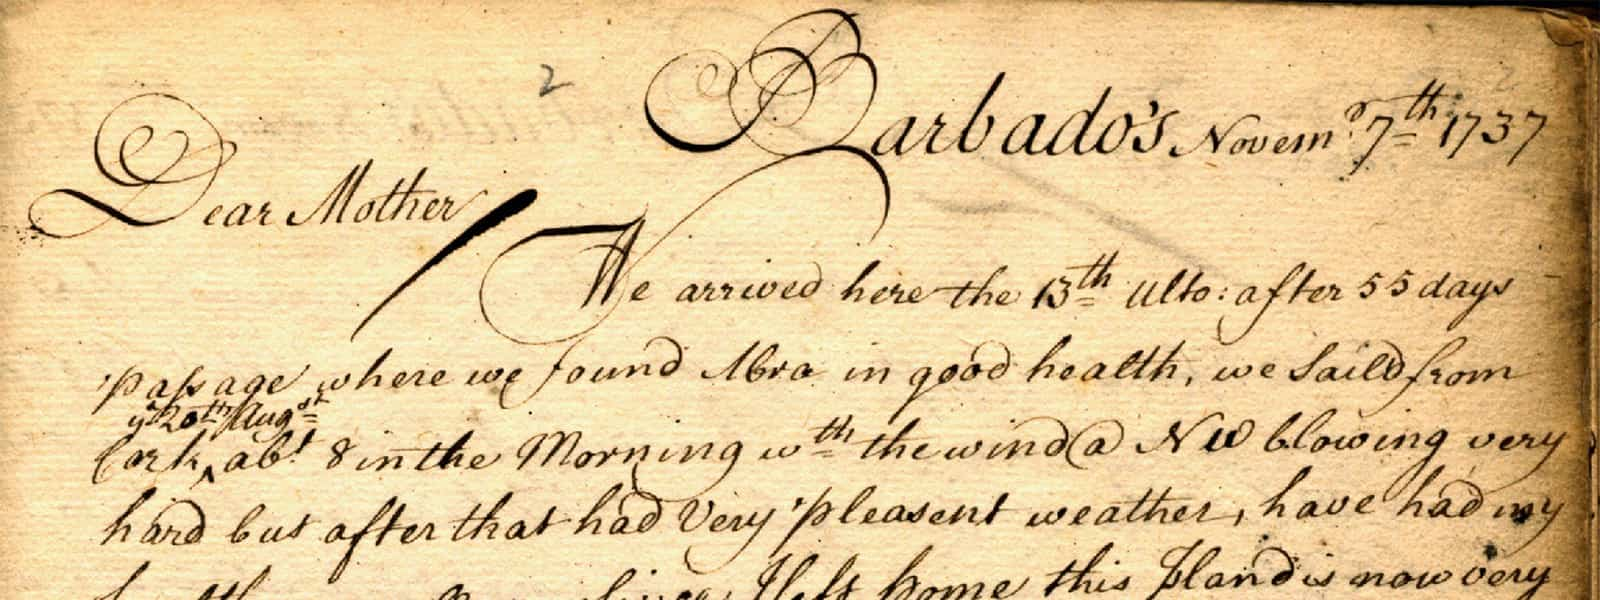 2
Barbado's Novemr. 7th 1737
Dear Mother
We arrived here the 13th Ulto: after 55 days
passage where we found Abra in good health, we Saild from
ye 20th Augst
Cork ^ abt 8 in the Morning wth the wind @ NW blowing very
hard but after that had Very pleasent weather, have had my
since I left home this Island is now very